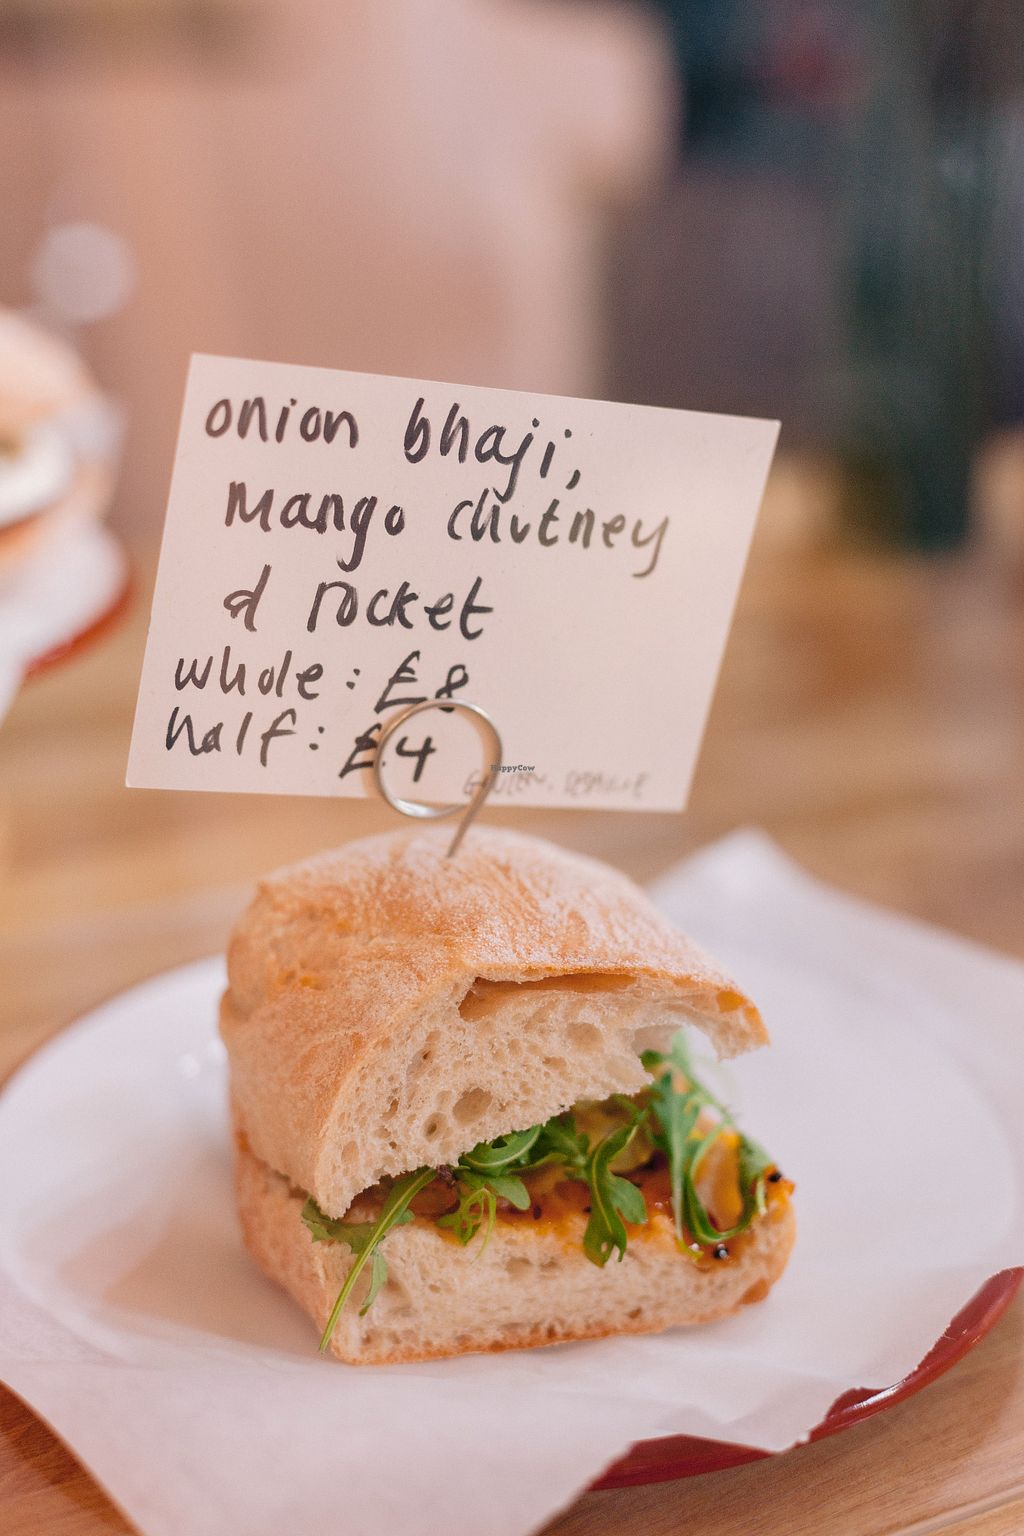 onion bhaji,
mango chutney
& rocket
whole: £8
half: £4
HappyCow